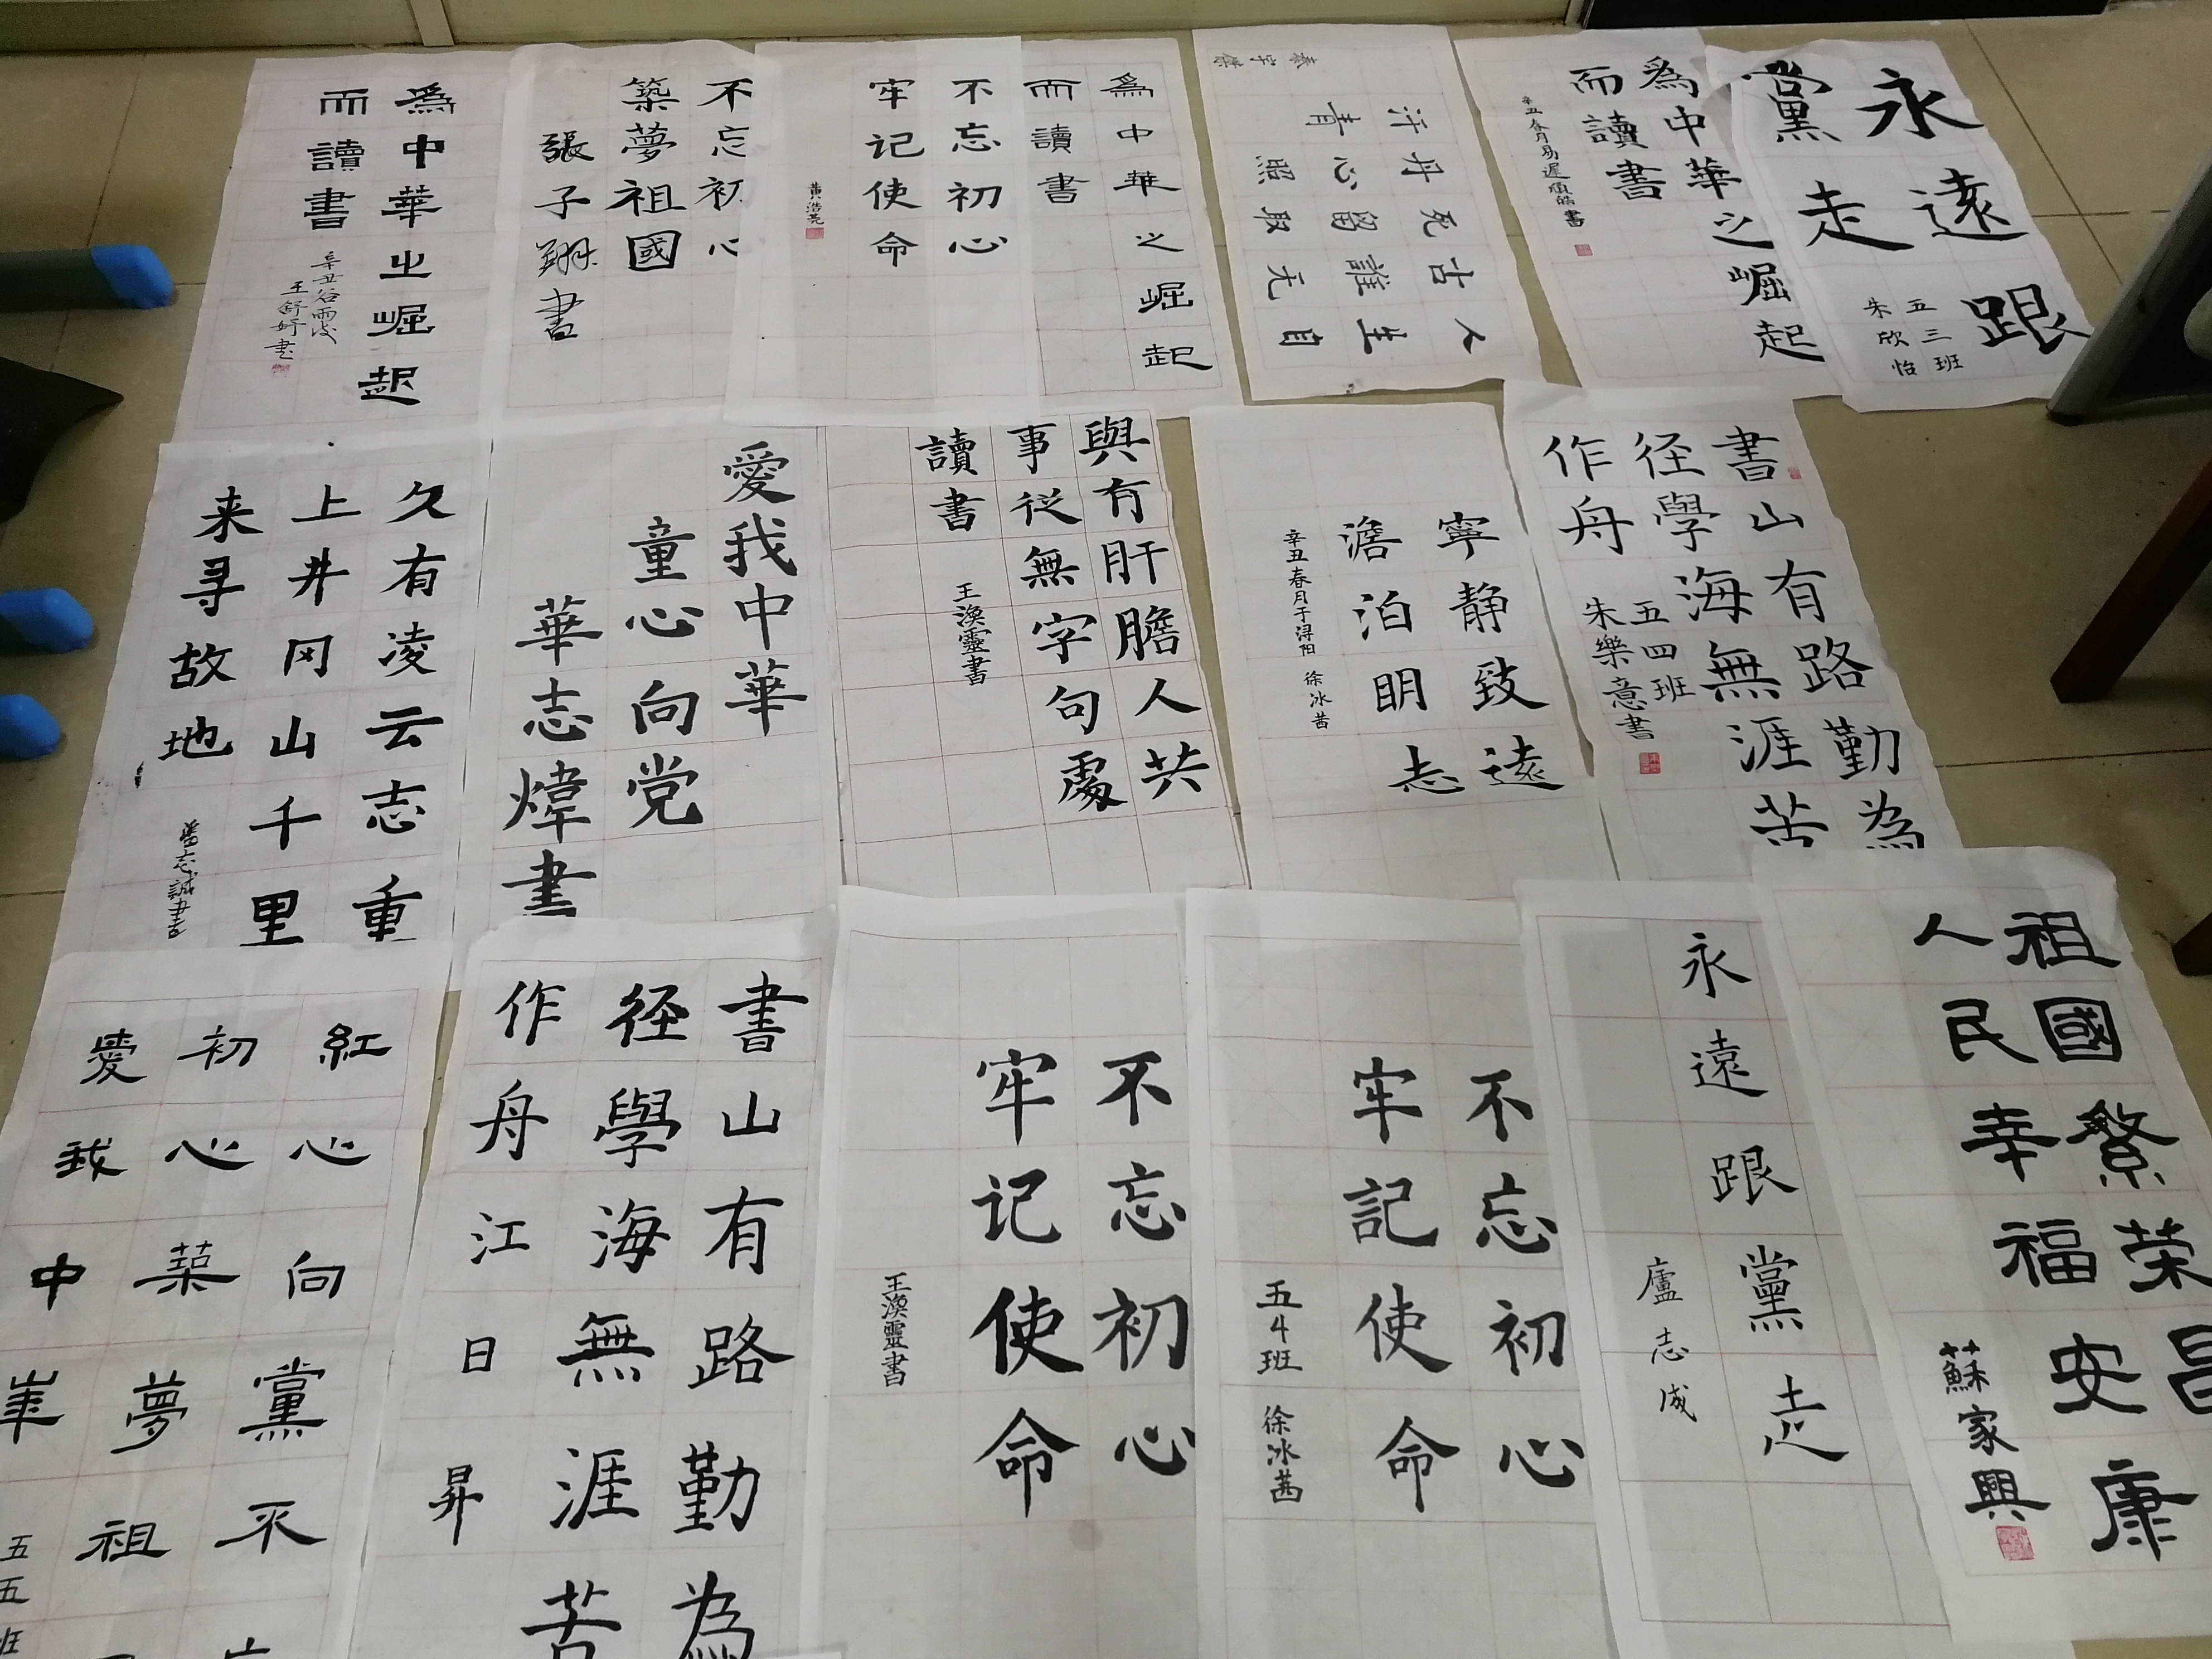 為中華之崛起
而讀書
辛丑谷雨後
王舒妍書
不忘初心
築夢祖國
張子翔書
不忘初心
牢记使命
黄浩亮
為中華之崛起
而讀書
人生自
古誰无
死留取
丹心照
汗青
為中華之崛起
而讀書
辛丑春月
永遠跟
黨走
五三班
朱欣怡
久有凌云志重
上井冈山千里
来寻故地
志誠書
愛我中華
童心向党
華志煒書
與有肝膽人共
事從無字句處
讀書
王渙靈書
寧静致遠
澹泊明志
辛丑春月于浔阳 徐冰茜
書山有路勤為
径學海無涯苦
作舟
五四班
朱樂意書
紅心向黨不
初心築夢祖
愛我中華
五五班
書山有路勤為
径學海無涯苦
作舟江日昇
不忘初心
牢记使命
王渙靈書
不忘初心
牢記使命
五4班 徐冰茜
永遠跟黨走
廬志成
祖國繁荣昌
人民幸福安康
蘇家興